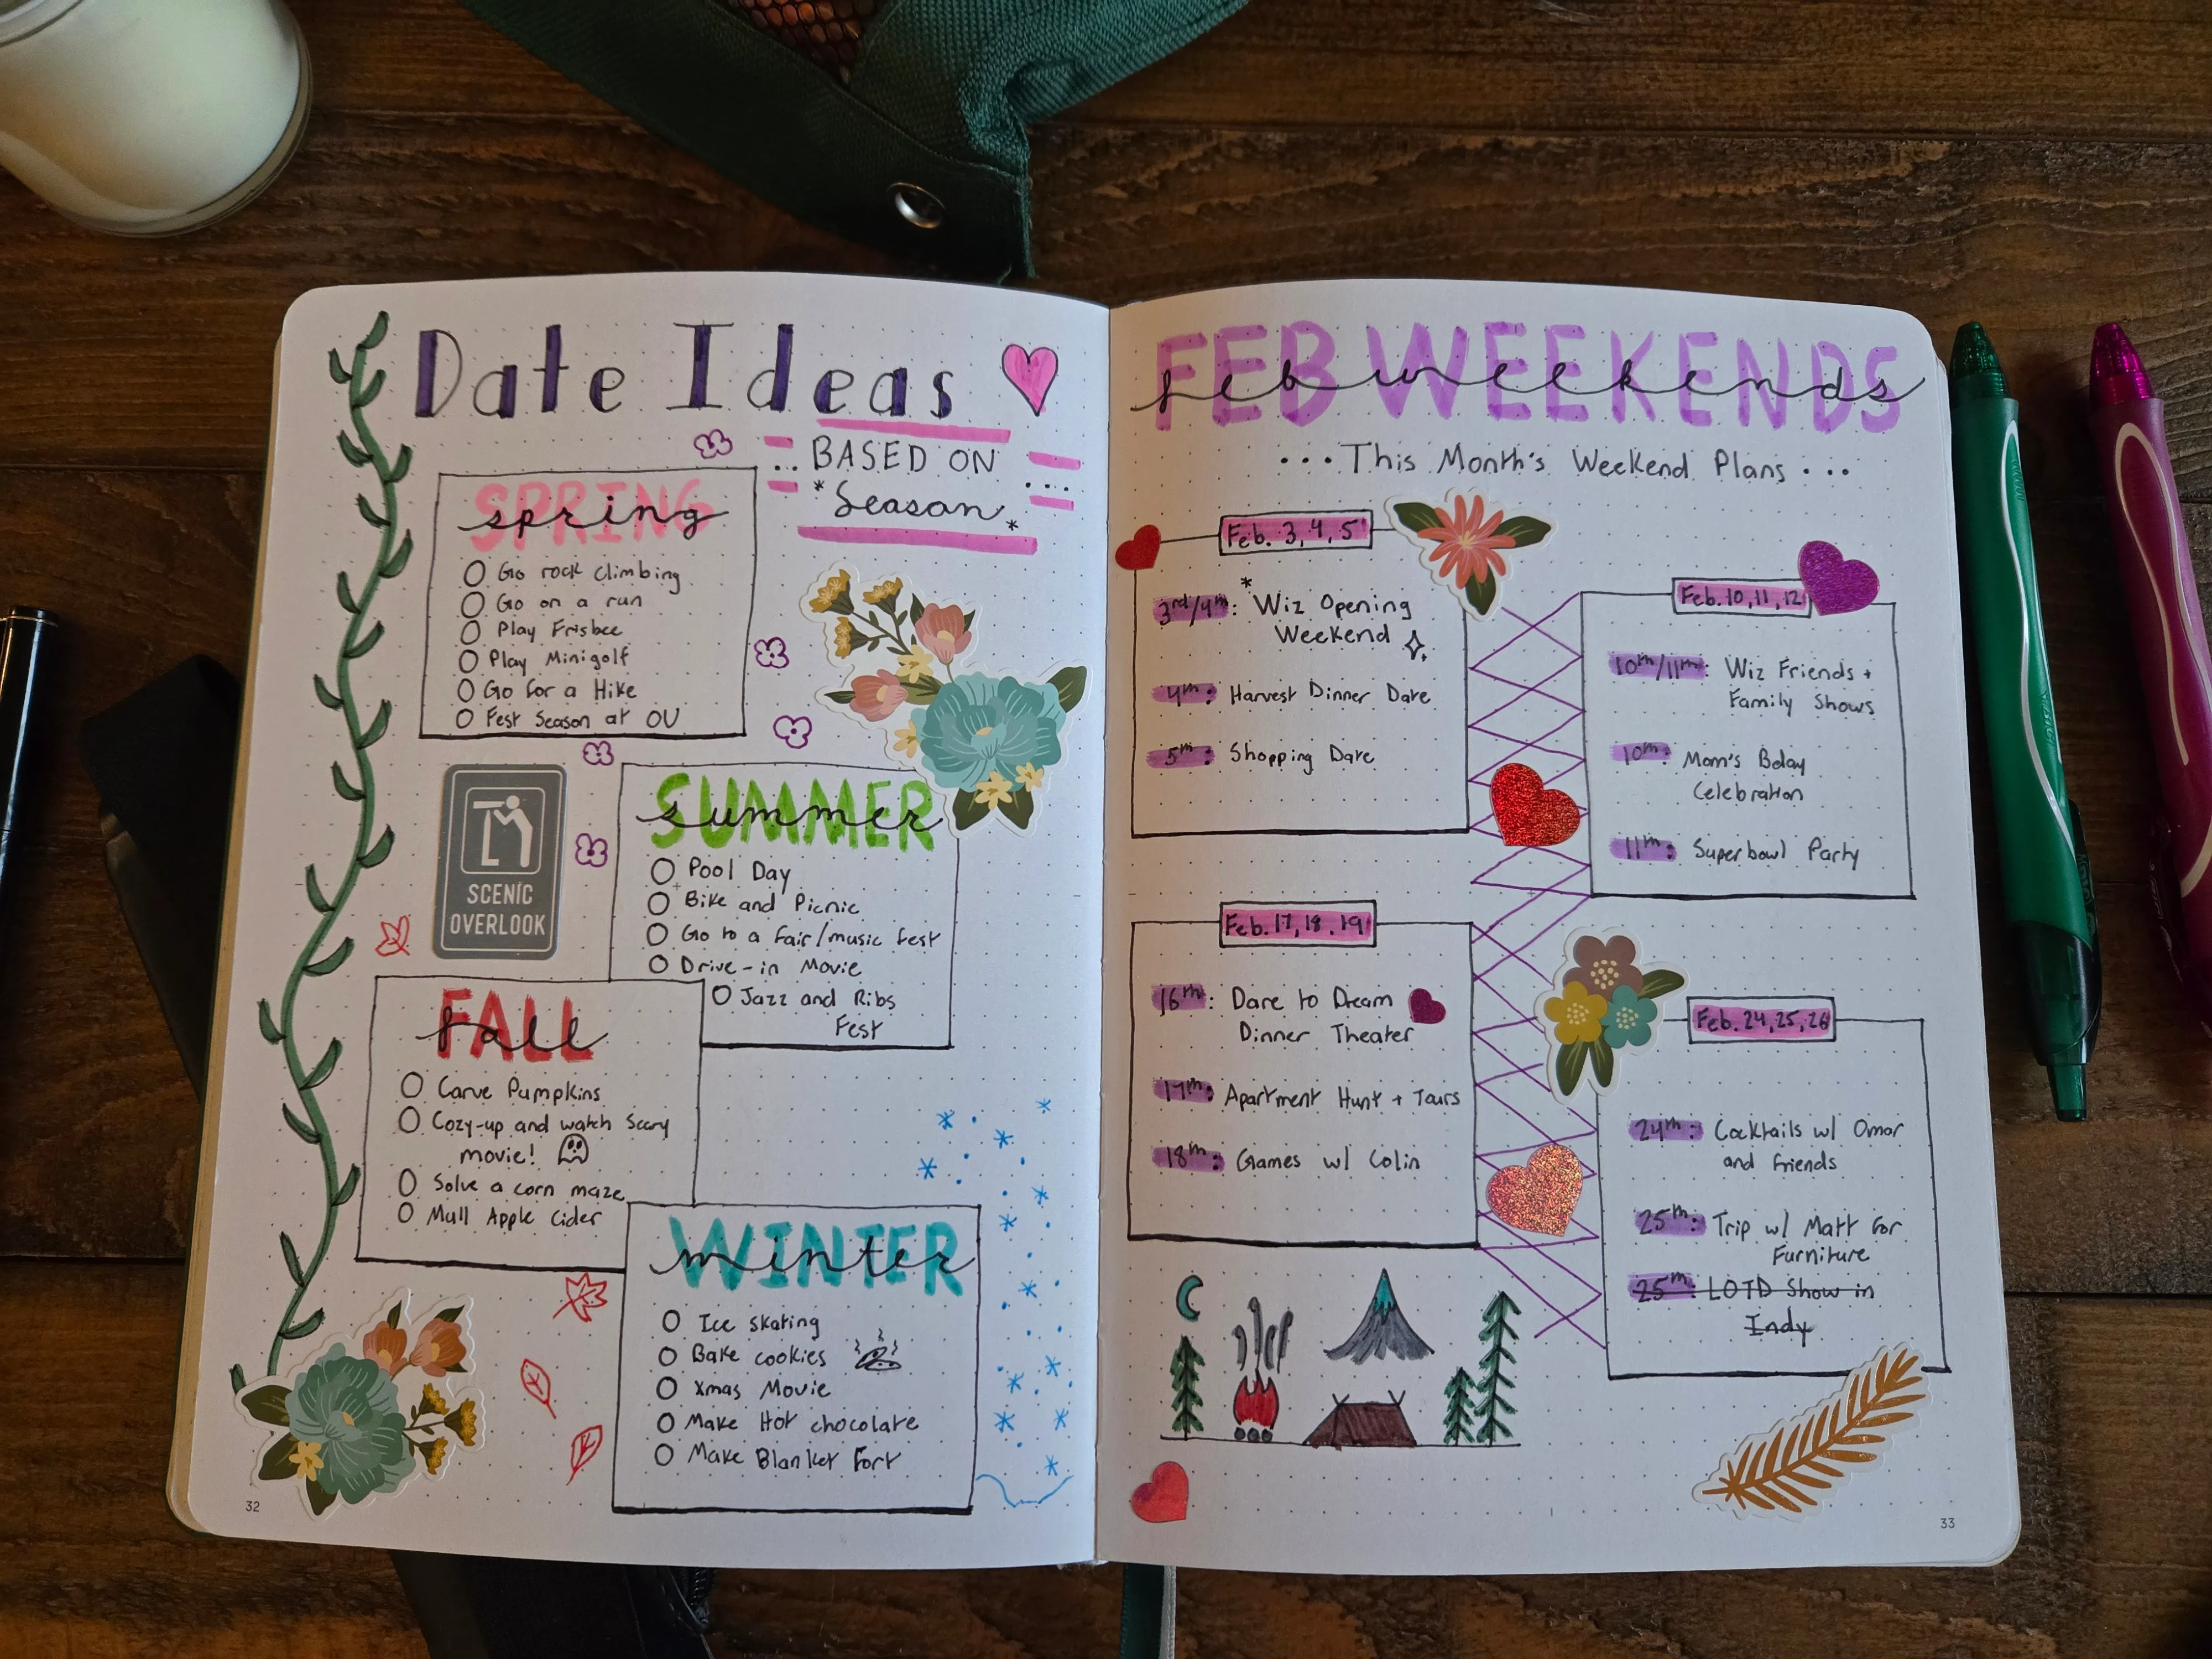 Date Ideas
BASED ON
*Season*
SPRING
spring
Go rock climbing
Go on a run
Play Frisbee
Play Minigolf
Go for a Hike
Fest Season at OU
SCENIC
OVERLOOK
SUMMER
summer
Pool Day
Bike and Picnic
Go to a fair/music fest
Drive-in Movie
Jazz and Ribs
Fest
FALL
fall
Carve Pumpkins
Cozy-up and watch scary
movie!
Solve a corn maze
Mull Apple Cider
WINTER
winter
Ice skating
Bake cookies
Xmas Movie
Make Hot chocolate
Make Blanket Fort
32
FEB WEEKENDS
feb weekends
...This Month's Weekend Plans...
Feb. 3, 4, 5
3rd/4th: *Wiz Opening
Weekend
4th: Harvest Dinner Date
5th: Shopping Date
Feb. 10, 11, 12
10th/11th: Wiz Friends +
Family Shows
10th: Mom's Bday
Celebration
11th: Superbowl Party
Feb. 17, 18, 19
16th: Dare to Dream
Dinner Theater
17th: Apartment Hunt + Tours
18th: Games w/ Colin
Feb. 24, 25, 26
24th: Cocktails w/ Omar
and friends
25th: Trip w/ Matt for
Furniture
25th: LOTD Show in
Indy
33